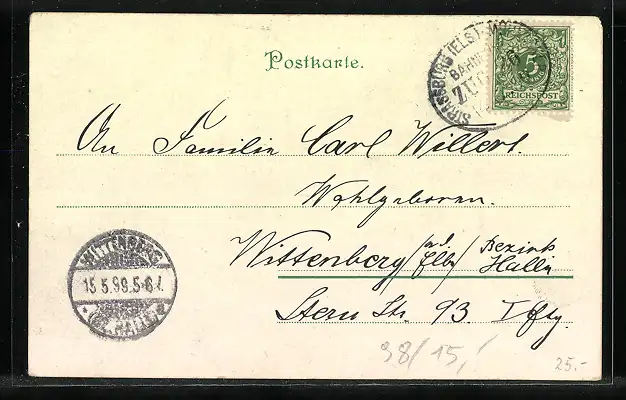 Postkarte.
STRASSBURG (ELS)
BAHN
ZUG
5
REICHSPOST
An Familie Carl Willert.
Wohlgeboren.
Wittenberg a.d. Elbe / Bezirk Halle
Stern Str. 93. I
WITTENBERG
15.5.99.5-6
HALLE
98/15,-
25.-